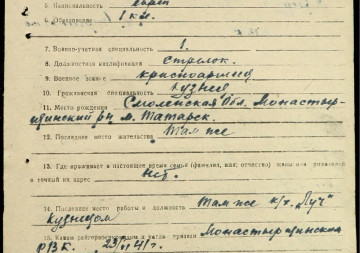 5. Национальность еврей
6. Образование 1 кл.
7. Военно-учетная специальность 1.
8. Должностная квалификация стрелок
9. Военное звание красноармеец
10. Гражданская специальность кузнец
11. Место рождения Смоленская Обл. Монастыр-
щинский р-н м. Татарск.
12. Последнее место жительства Там же
13. Где проживает в настоящее время семья (фамилия, имя, отчество) жены или родителей
и точный их адрес нет.
14. Последнее место работы и должность Там же к/х. "Луч"
Кузнецом
15. Каким райгорвоенкоматом и когда призван Монастырщинским
РВК. 23/VI 41 г.